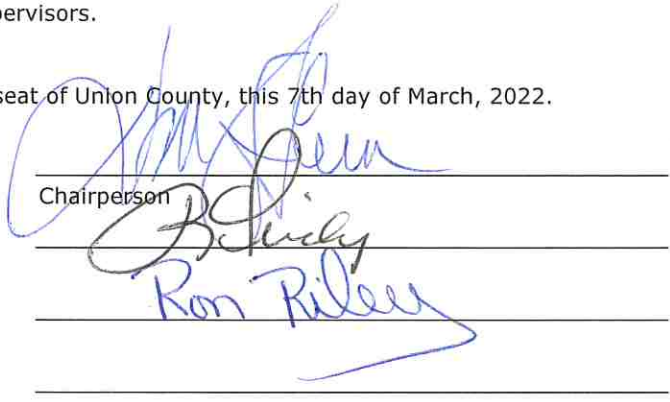 pervisors.
seat of Union County, this 7th day of March, 2022.
Chairperson
Ron Riley